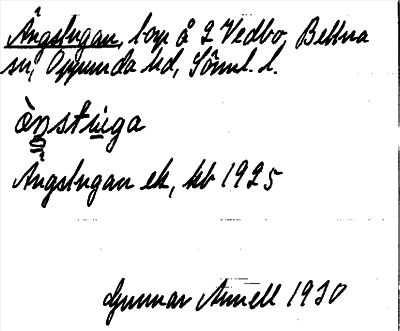 Ängstugan, torp å 2 Vedbo, Bettna
sn, Oppunda hd, Sörml. l.
ὰŋstu̲ga
Ängstugan ek, kb 1925
Gunnar Annell 1930